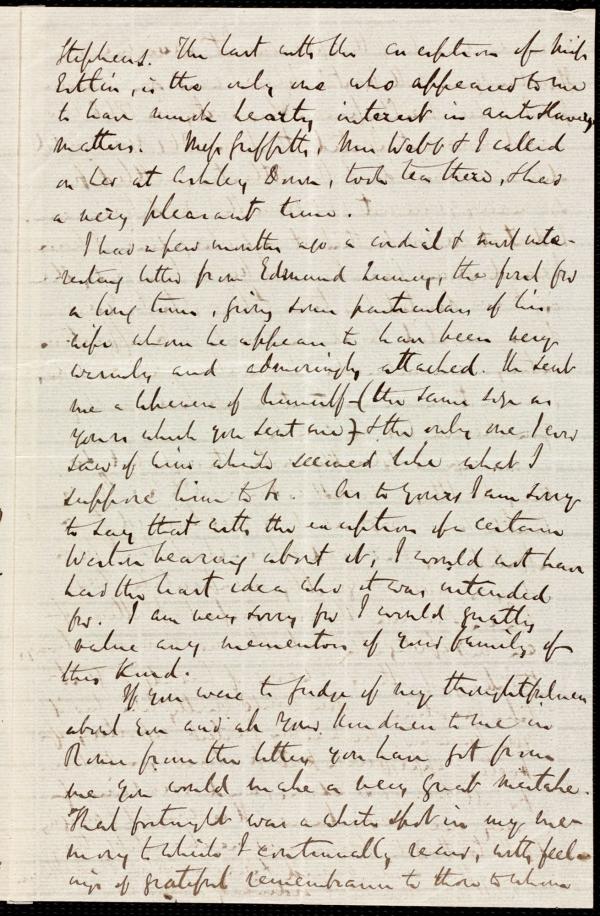 Stephens. The last with the exception of Miss
Estlin, is the only one who appeared to me
to have much hearty interest in anti Slavery
matters. Miss Griffiths, Mrs Webb & I called
on her at Ashley Down, took tea there, & had
a very pleasant time.
I had a few months ago a cordial & most inte-
resting letter from Edmund Quincy, the first for
a long time, giving some particulars of his
wife whom he appears to have been very
warmly and admiringly attached. He sent
me a likeness of himself - (the same size as
yours which you sent me) - & the only one I ever
saw of him which seemed like what I
suppose him to be. As to yours I am sorry
to say that with the exception of a certain
Weston bearing about it, I would not have
had the least idea who it was intended
for. I am very sorry for I would greatly
value any mementos of your family of
this kind.
If you were to judge of my thoughtfulness
about you and all your kindness to me in
Rome from the letters you have got from
me you would make a very great mistake.
That fortnight was a white spot in my me-
mory to which I continually recur, with feel-
ings of grateful remembrance to those to whom